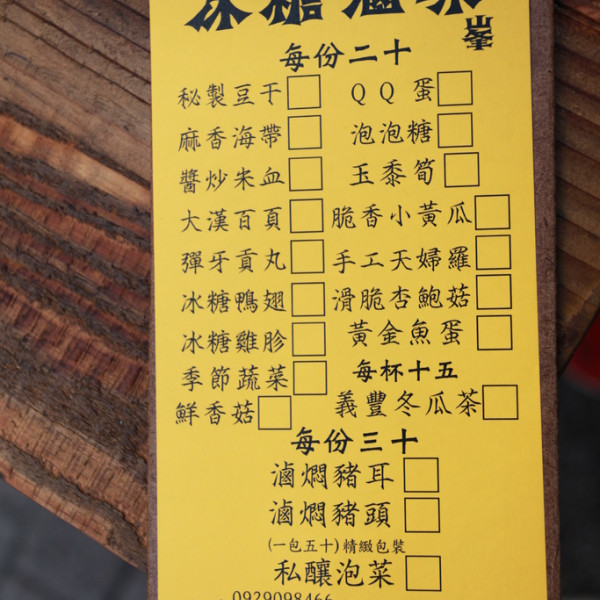 冰糖滷味
每份二十
秘製豆干 QQ蛋
麻香海帶 泡泡糖
醬炒朱血 玉黍筍
大漢百頁 脆香小黃瓜
彈牙貢丸 手工天婦羅
冰糖鴨翅 滑脆杏鮑菇
冰糖雞胗 黃金魚蛋
季節蔬菜 每杯十五
鮮香菇 義豐冬瓜茶
每份三十
滷燜豬耳
滷燜豬頭
(一包五十)精緻包裝
私釀泡菜
0929098466